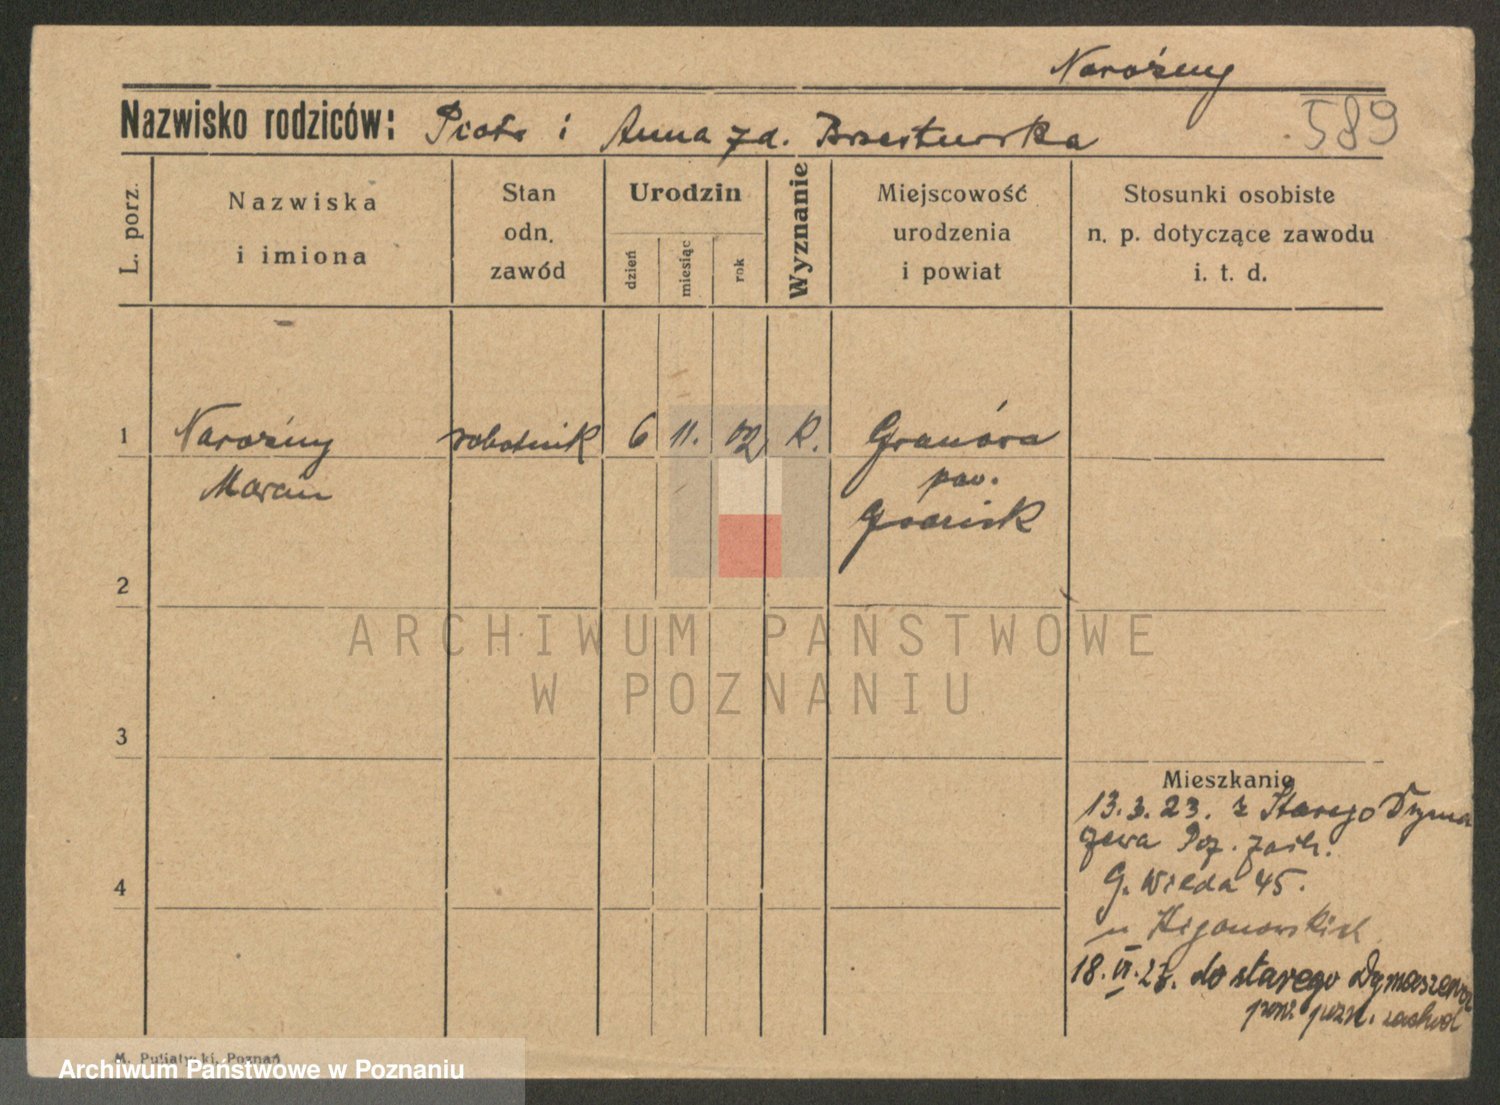 Narożny
Nazwisko rodziców: Piotr i Anna zd. 
589
L. porz.
Nazwiska
i imiona
Stan
odn.
zawód
Urodzin
dzień
miesiąc
rok
Wyznanie
Miejscowość
urodzenia
i powiat
Stosunki osobiste
n. p. dotyczące zawodu
i. t. d.
1 Narożny robotnik 6 11. 02 k. Granówa
Marcin pow.
2
3
4
Mieszkanie
13.3.23. z Starego Dyma
czewa Poz. zach.
G. Wilda 45.
u
18.VI.23. do starego Dymaszewa
pow. pozn. zachod
ARCHIWUM PAŃSTWOWE
W POZNANIU
Poznań
Archiwum Państwowe w Poznaniu